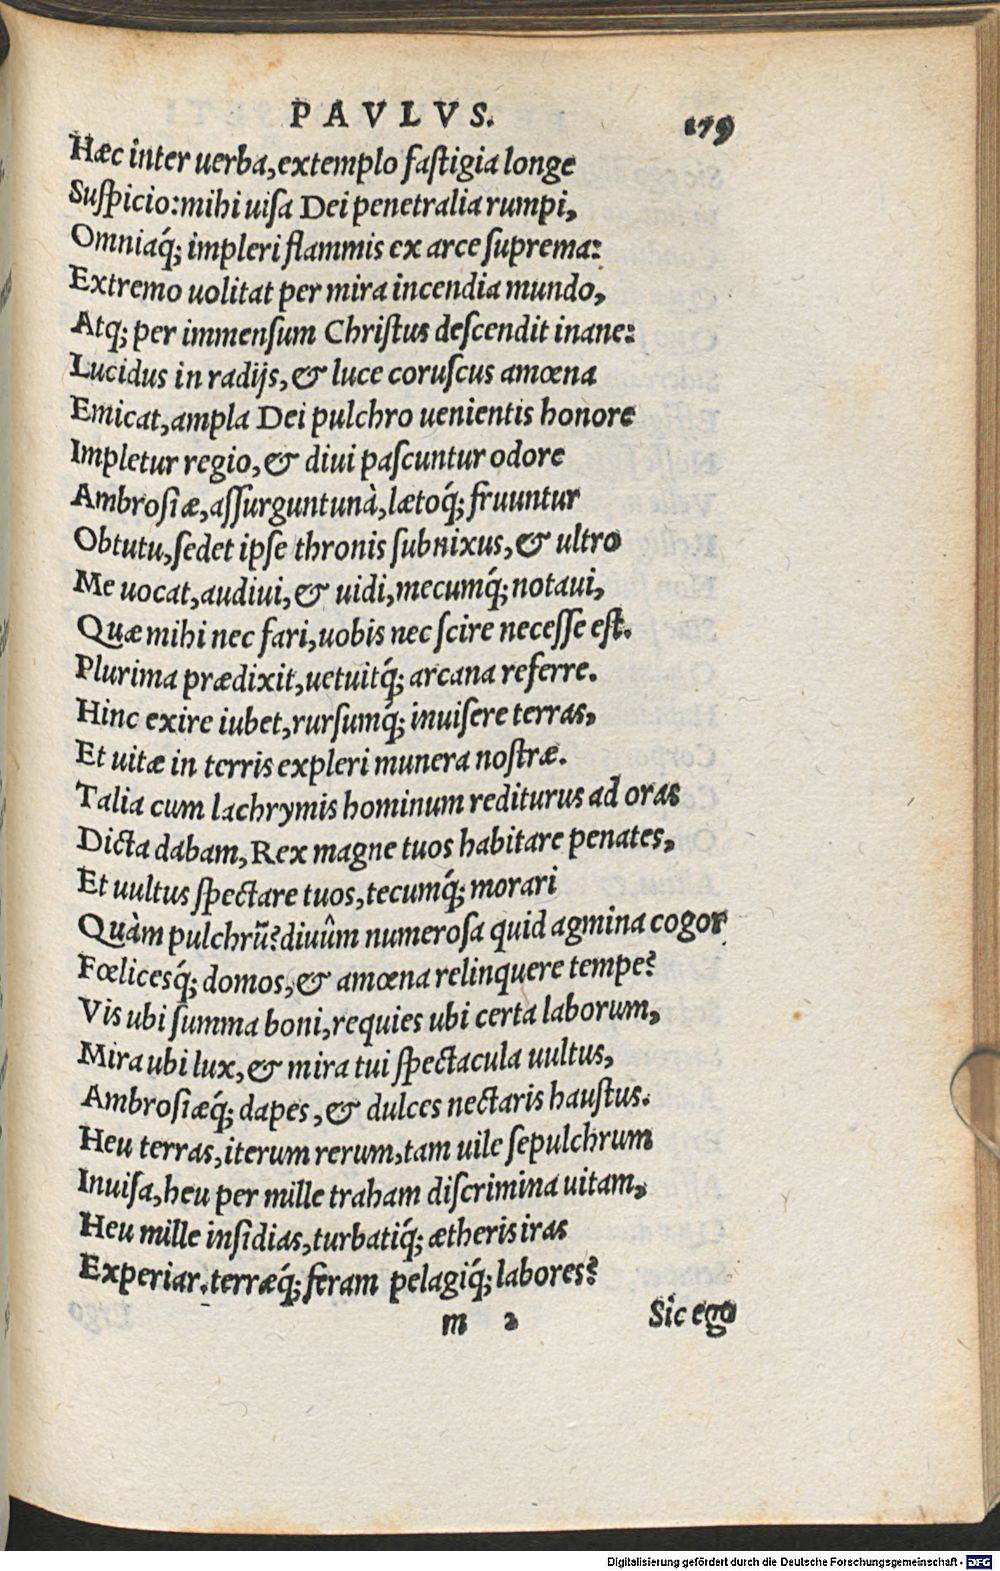 PAVLVS. 179
Hæc inter uerba, extemplo faſtigia longe
Suſpicio: mihi uiſa Dei penetralia rumpi,
Omniaq́; impleri flammis ex arce ſuprema:
Extremo uolitat per mira incendia mundo,
Atq; per immenſum Chriſtus deſcendit inane:
Lucidus in radijs, & luce coruſcus amœna
Emicat, ampla Dei pulchro uenientis honore
Impletur regio, & diui paſcuntur odore
Ambroſiæ, aſſurgunt unà, lætoq́; fruuntur
Obtutu, ſedet ipſe thronis ſubnixus, & ultro
Me uocat, audiui, & uidi, mecumq́; notaui,
Quæ mihi nec fari, uobis nec ſcire neceſſe eſt.
Plurima prædixit, uetuitq́; arcana referre.
Hinc exire iubet, rurſumq́; inuiſere terras,
Et uitæ in terris expleri munera noſtræ.
Talia cum lachrymis hominum rediturus ad oras
Dicta dabam, Rex magne tuos habitare penates,
Et uultus ſpectare tuos, tecumq́; morari
Quàm pulchrũ? diuûm numeroſa quid agmina cogor
Fœlicesq́; domos, & amœna relinquere tempe?
Vis ubi ſumma boni, requies ubi certa laborum,
Mira ubi lux, & mira tui ſpectacula uultus,
Ambroſiæq́; dapes, & dulces nectaris hauſtus.
Heu terras, iterum rerum, tam uile ſepulchrum
Inuiſa, heu per mille traham diſcrimina uitam,
Heu mille inſidias, turbatiq́; ætheris iras
Experiar, terræq́; feram pelagiq́; labores?
m 2 Sic ego
Digitalisierung gefördert durch die Deutsche Forschungsgemeinschaft - DFG